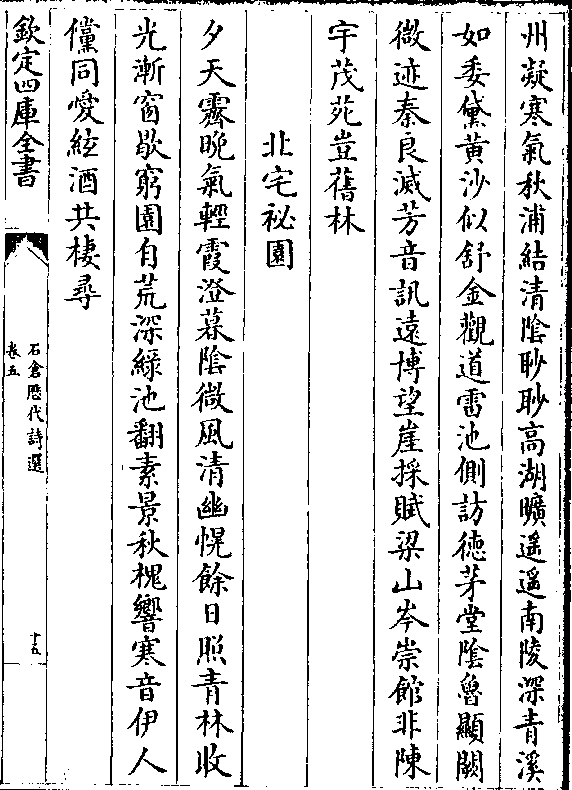 州凝寒氣秋浦結清陰眇眇髙湖曠遥遥南陵深青溪
如委黛黄沙似舒金觀道雷池側訪徳茅堂陰魯顯闕
微迹秦良滅芳音訊遠博望崖採賦梁山岑崇館非陳
宇茂苑豈舊林
北宅祕園
夕天霽晚氣輕霞澄暮陰微風清幽幌餘日照青林收
光漸窗歇窮園自荒深緑池翻素景秋槐響寒音伊人
儻同愛絃酒共棲尋
欽定四庫全書
石倉歴代詩選
卷五
十五